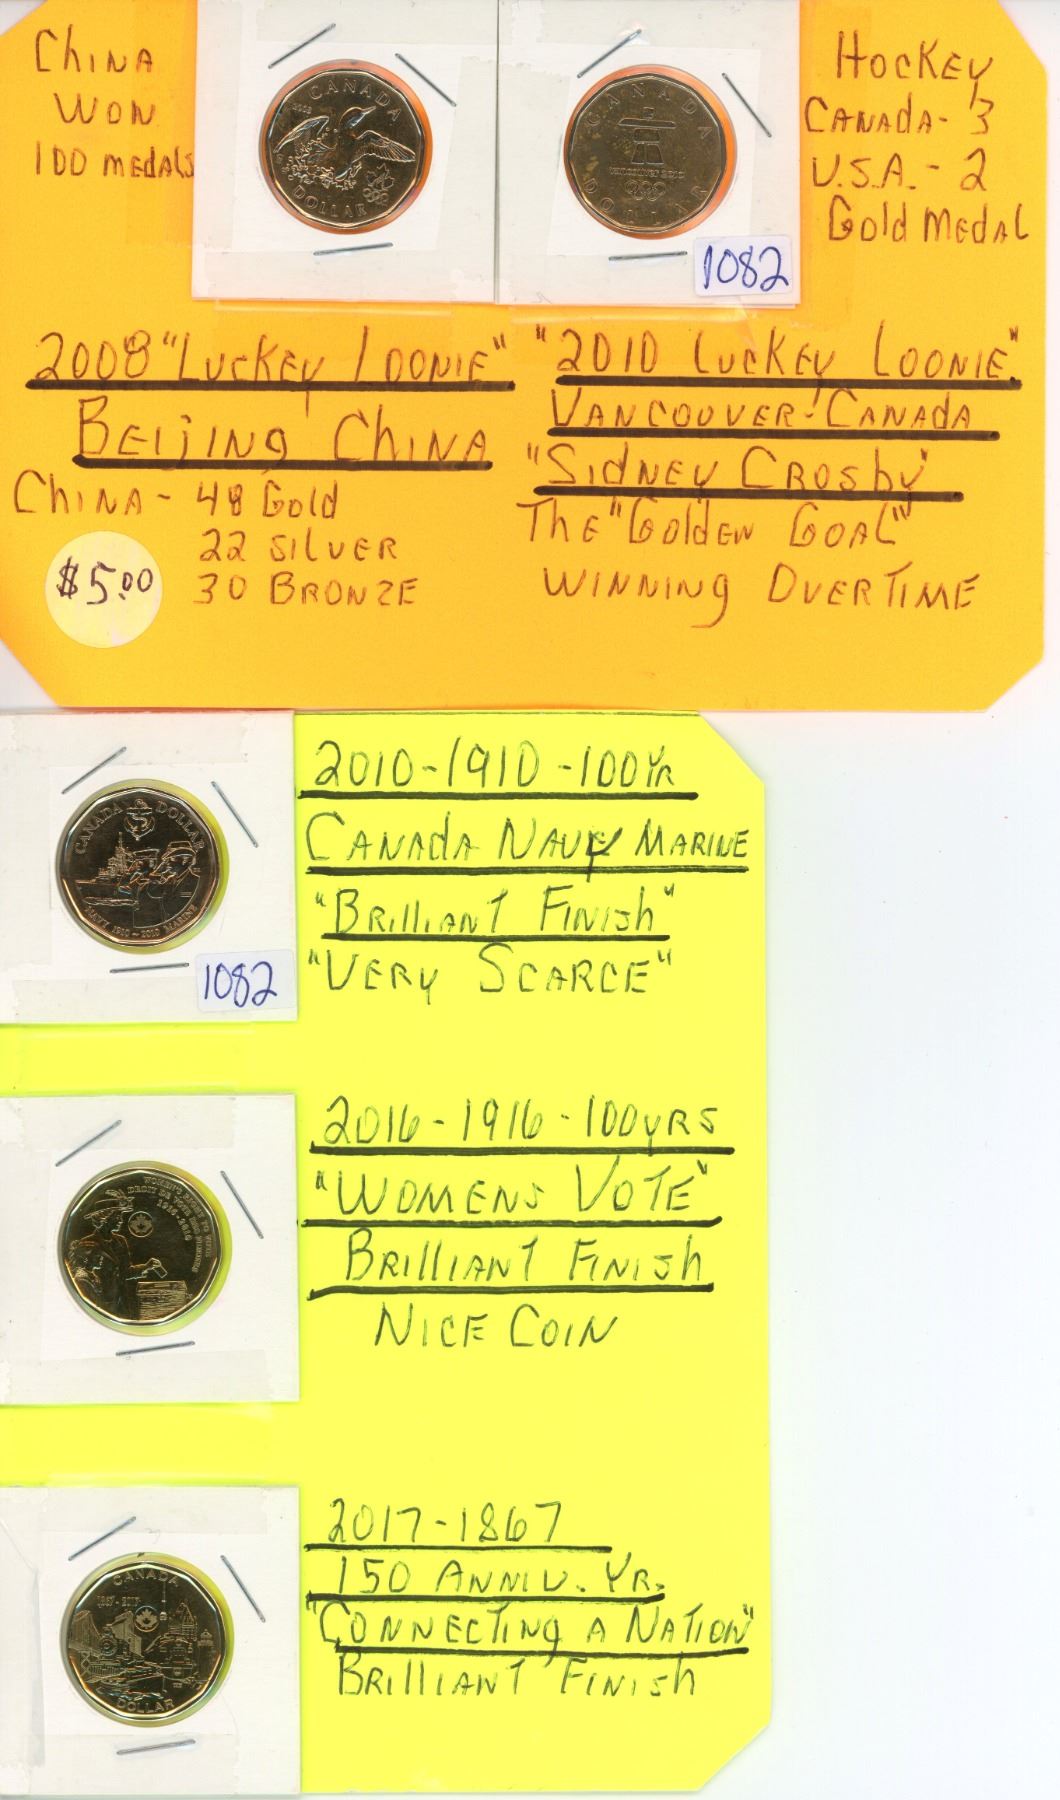 China
Won
100 medals
CANADA
2008
DOLLAR
CANADA
vancouver 2010
DOLLAR
1082
Hockey
Canada - 3
U.S.A. - 2
Gold Medal
2008 "Luckey Loonie"
Beijing China
China - 48 Gold
22 Silver
30 Bronze
$5.00
"2010 Luckey Loonie"
Vancouver - Canada
"Sidney Crosby"
The "Golden Goal"
Winning Overtime
CANADA DOLLAR
NAVY 1910 - 2010 MARINE
1082
2010 - 1910 - 100 Yr
Canada Navy Marine
"Brilliant Finish"
"Very Scarce"
WOMEN'S RIGHT TO VOTE
DROIT DE VOTE DES FEMMES
1916 - 2016
2016 - 1916 - 100 yrs
"Womens Vote"
Brilliant Finish
Nice Coin
CANADA
1867 - 2017
DOLLAR
2017 - 1867
150 Anniv. Yr.
"Connecting a Nation"
Brilliant Finish